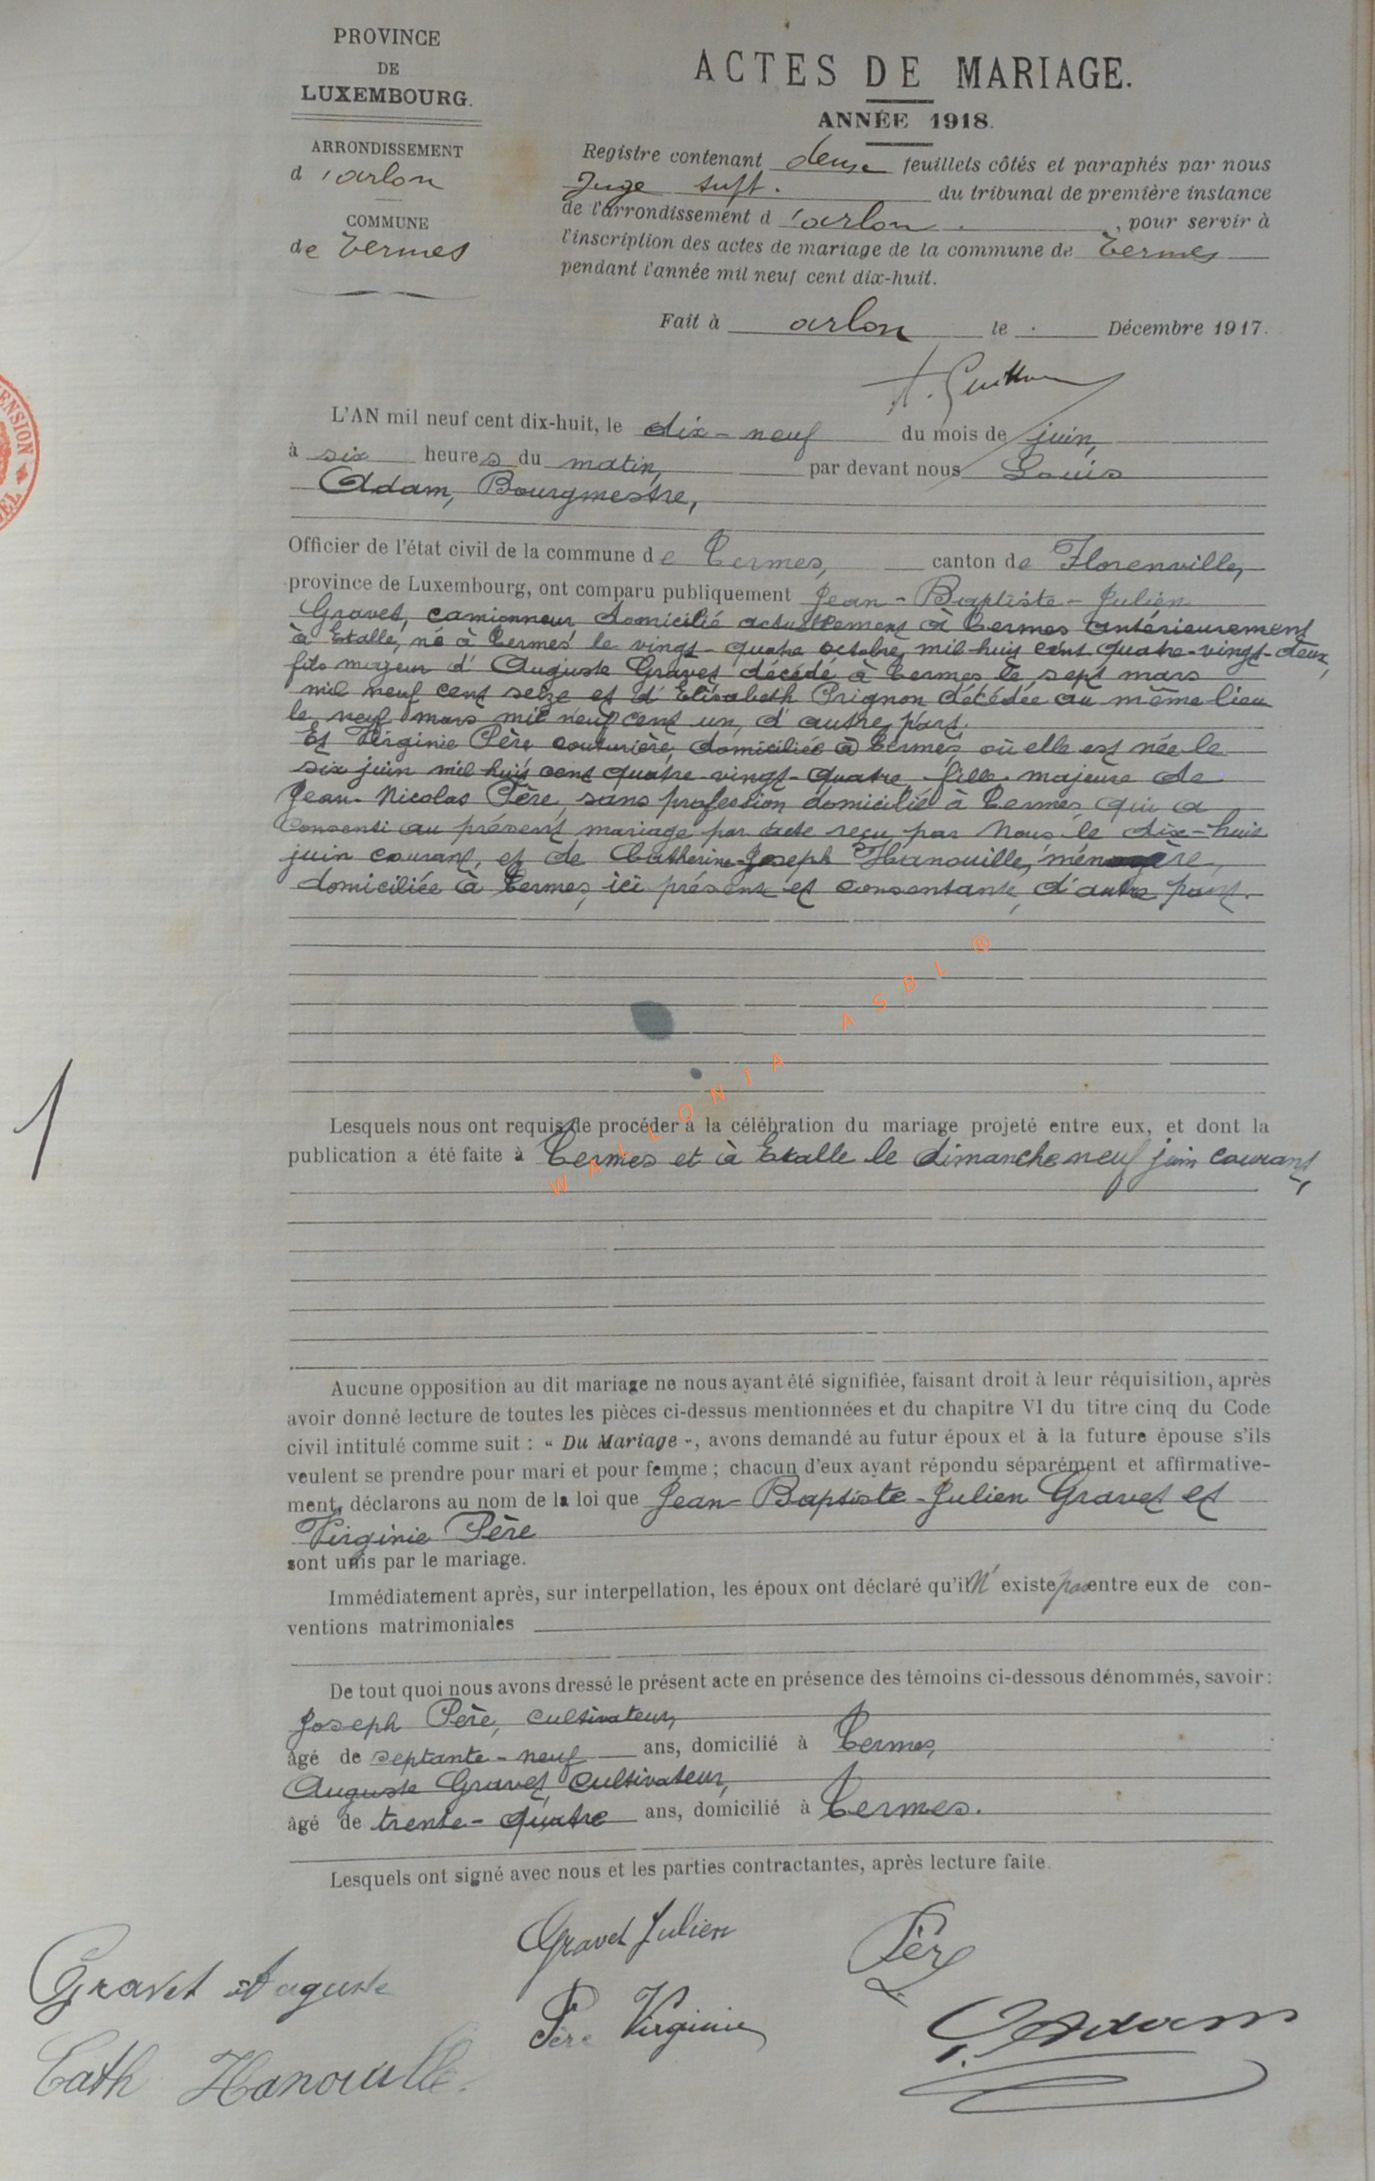 PROVINCE
DE
LUXEMBOURG.
ARRONDISSEMENT
d'arlon
COMMUNE
de Termes
ACTES DE MARIAGE.
ANNÉE 1918.
Registre contenant deux feuillets côtés et paraphés par nous
Juge supt. du tribunal de première instance
de l'arrondissement d'arlon, pour servir à
l'inscription des actes de mariage de la commune de Termes
pendant l'année mil neuf cent dix-huit.
Fait à arlon le Décembre 1917.
L'AN mil neuf cent dix-huit, le dix-neuf du mois de juin,
à six heures du matin, par devant nous Louis
Adam, Bourgmestre,
Officier de l'état civil de la commune de Termes, canton de Florenville,
province de Luxembourg, ont comparu publiquement Jean-Baptiste-Julien
Gravet, camionneur domicilié actuellement à Termes antérieurement
à Etalle, né à Termes le vingt-quatre octobre mil-huit cent quatre-vingt-deux,
fils majeur d'Auguste Gravet décédé à Termes le sept mars
mil neuf cent seize et d'Elisabeth Prignon décédée au même lieu
le neuf mars mil neuf cent un, d'autre part.
Et Virginie Père couturière, domiciliée à Termes, où elle est née le
six juin mil huit cent quatre-vingt-quatre, fille majeure de
Jean-Nicolas Père, sans profession domicilié à Termes qui a
consenti au présent mariage par acte reçu par Nous le dix-huit
juin courant, et de Catherine-Joseph Hanouille, ménagère,
domiciliée à Termes, ici présente et consentante, d'autre part.
WALLONIA ASBL ®
1
Lesquels nous ont requis de procéder à la célébration du mariage projeté entre eux, et dont la
publication a été faite à Termes et à Etalle le dimanche neuf juin courant,
Aucune opposition au dit mariage ne nous ayant été signifiée, faisant droit à leur réquisition, après
avoir donné lecture de toutes les pièces ci-dessus mentionnées et du chapitre VI du titre cinq du Code
civil intitulé comme suit : « Du Mariage », avons demandé au futur époux et à la future épouse s'ils
veulent se prendre pour mari et pour femme ; chacun d'eux ayant répondu séparément et affirmative-
ment, déclarons au nom de la loi que Jean-Baptiste-Julien Gravet et
Virginie Père
sont unis par le mariage.
Immédiatement après, sur interpellation, les époux ont déclaré qu'il N'existe pas entre eux de con-
ventions matrimoniales
De tout quoi nous avons dressé le présent acte en présence des témoins ci-dessous dénommés, savoir :
Joseph Père, cultivateur,
âgé de septante-neuf ans, domicilié à Termes,
Auguste Gravet, cultivateur,
âgé de trente-quatre ans, domicilié à Termes.
Lesquels ont signé avec nous et les parties contractantes, après lecture faite.
Gravet Julien
Père
Gravet Auguste
Père Virginie
L. Adam
Cath Hanouille.